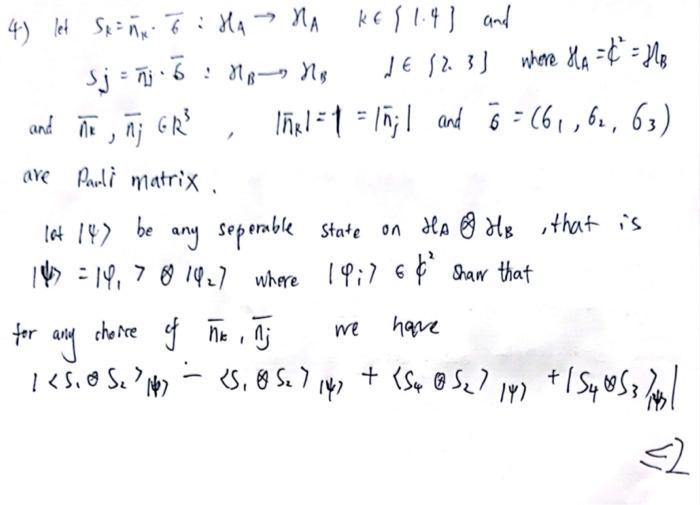 4) let Sₖ = n̄ₖ · σ̄ : ℋA → ℋA k ∈ {1.4} and
Sj = n̄j · σ̄ : ℋB → ℋB j ∈ {2.3} where ℋA = ₵² = ℋB
and n̄ₖ , n̄j ∈ R³ , |n̄ₖ| = 1 = |n̄j| and σ̄ = (σ₁ , σ₂ , σ₃)
are Pauli matrix .
let |ψ> be any seperable state on ℋA ⊗ ℋB , that is
|ψ> = |φ₁ > ⊗ |φ₂> where |φi> ∈ ₵² show that
for any choice of n̄ₖ , n̄j we have
| <S₁ ⊗ S₂>|ψ> - <S₁ ⊗ S₂>|ψ> + <S₄ ⊗ S₂>|ψ> + |S₄ ⊗ S₃>|ψ>|
≤2